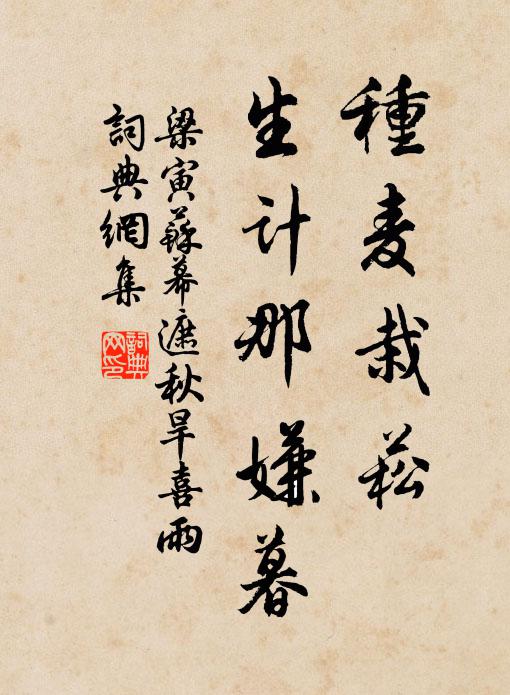 種麦栽菘
生计那嫌暮
梁寅蘇幕遮秋旱喜雨
詞典網集
詞典網印